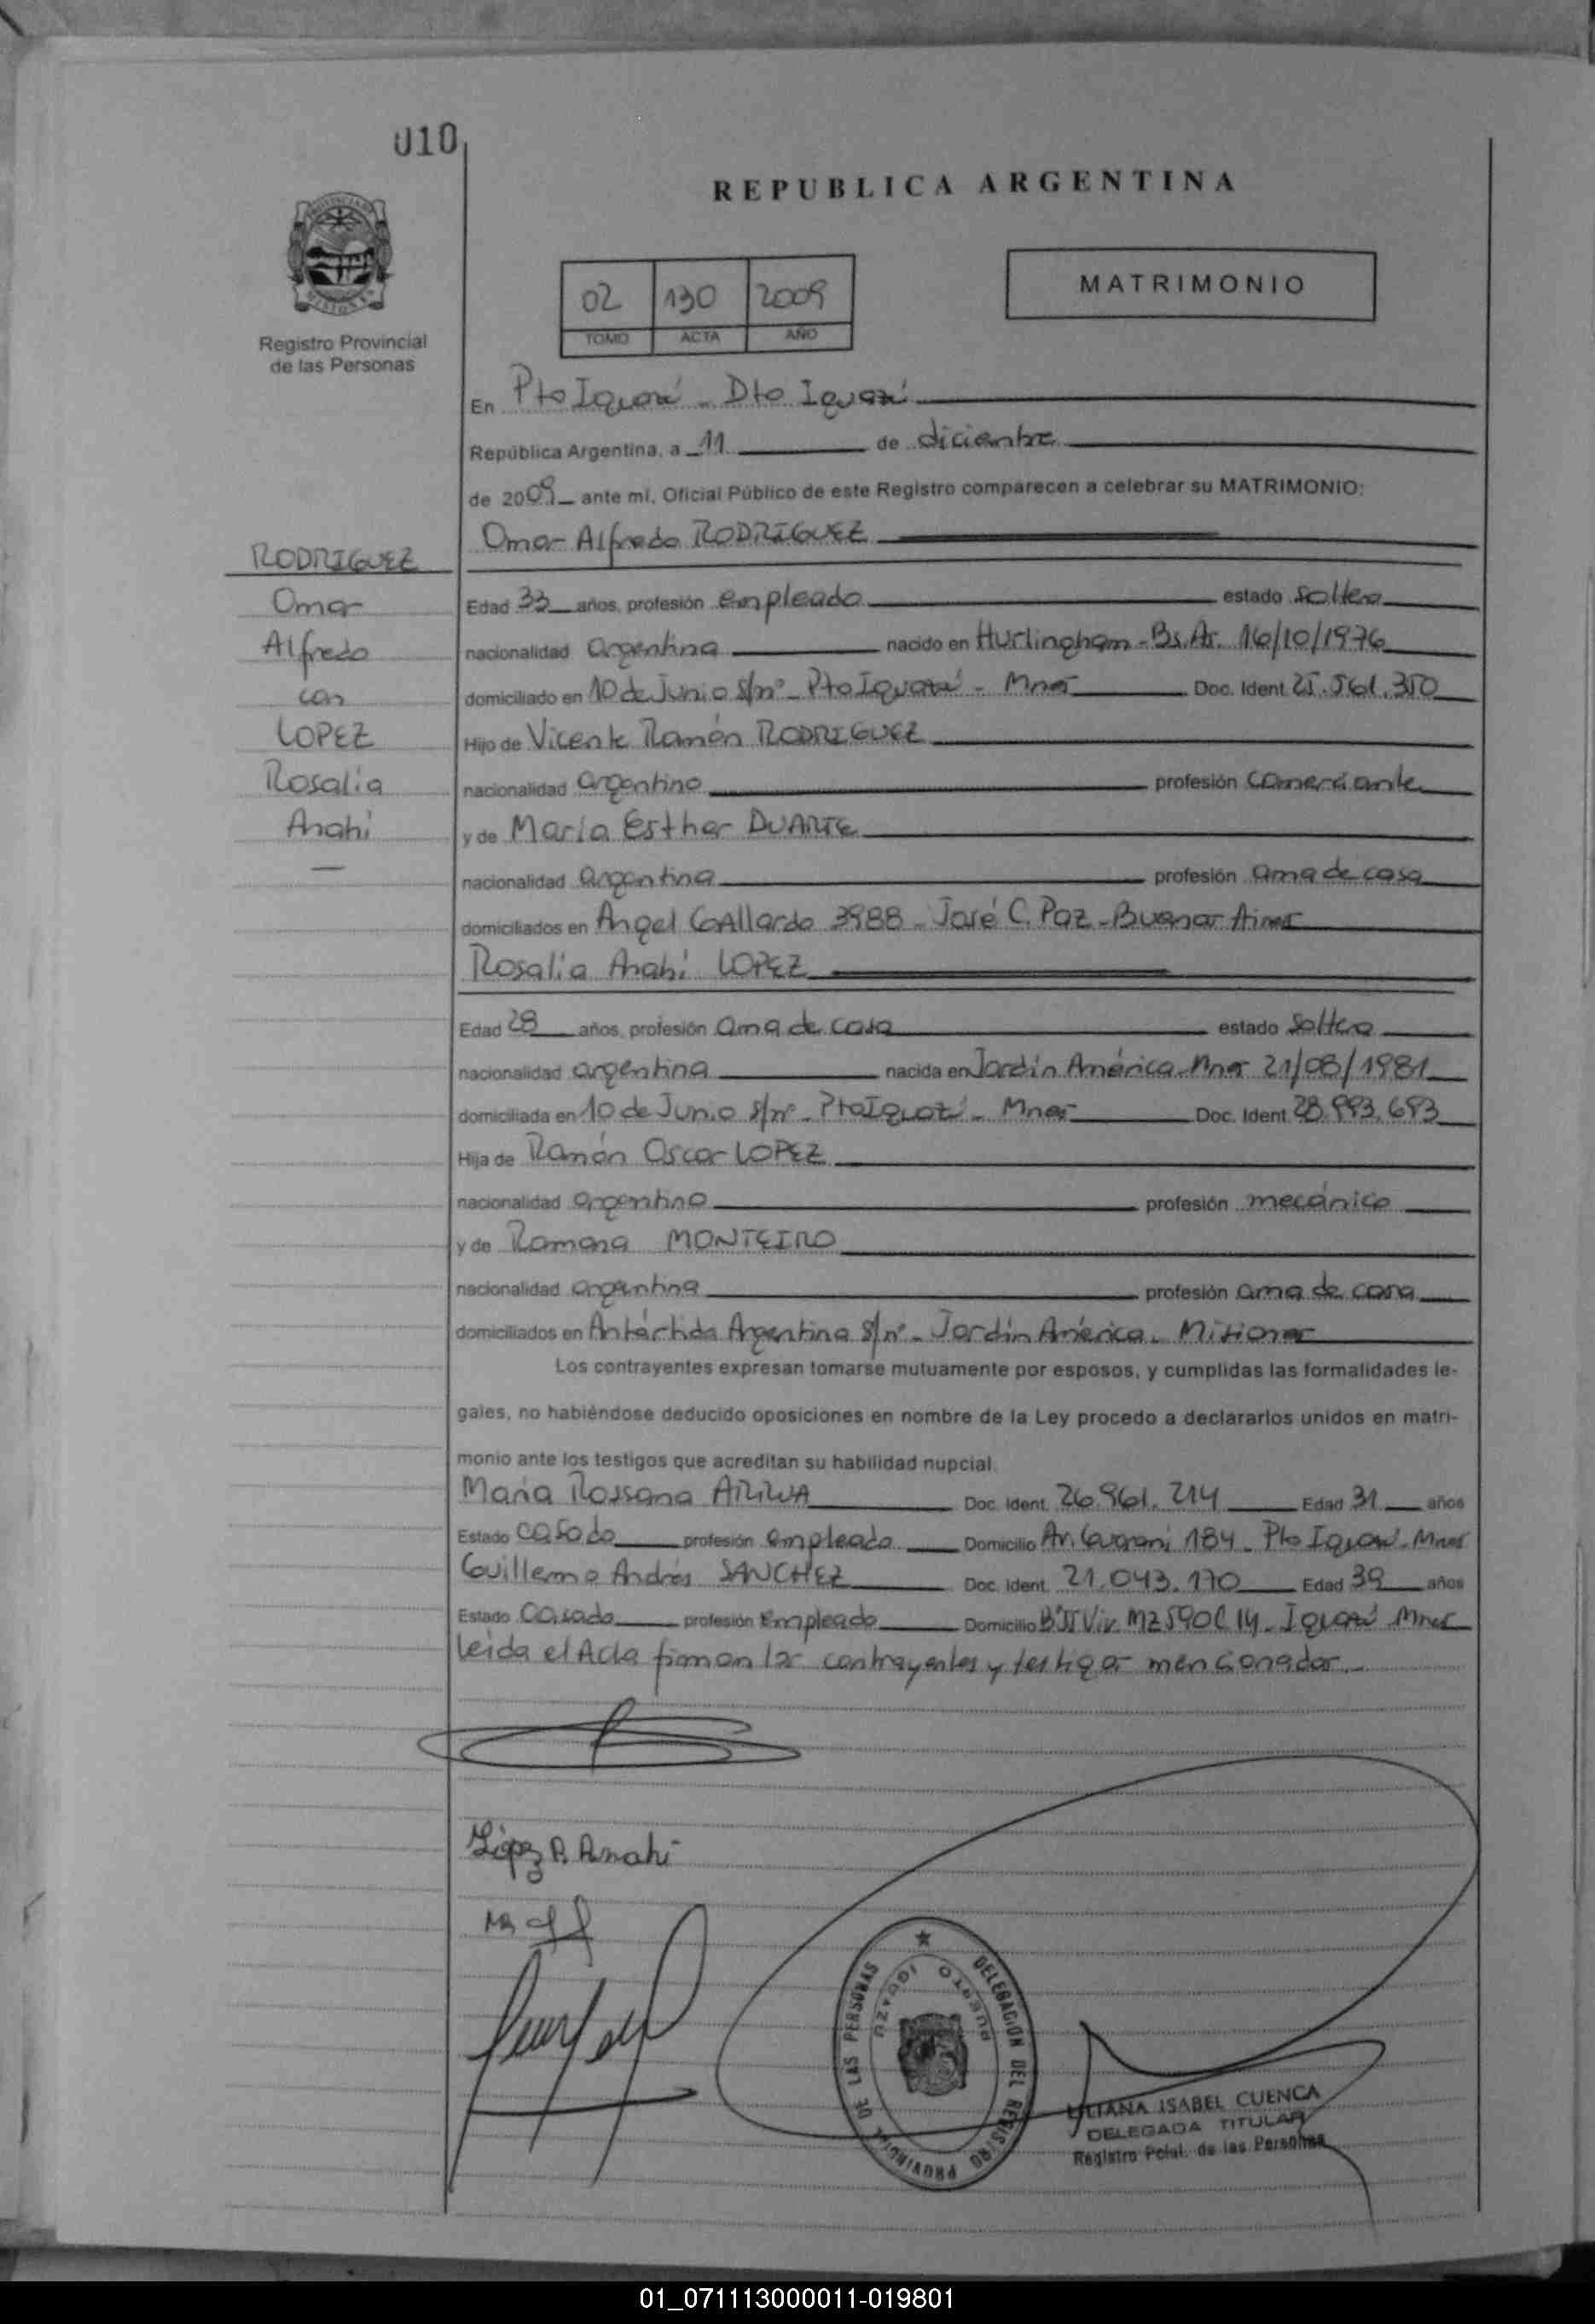 010
REPUBLICA ARGENTINA
02 130 2009
TOMO ACTA AÑO
MATRIMONIO
Registro Provincial
de las Personas
En Pto Iguazú - Dto Iguazú
República Argentina, a 11 de diciembre
de 2009 ante mí, Oficial Público de este Registro comparecen a celebrar su MATRIMONIO:
Omar Alfredo RODRIGUEZ
RODRIGUEZ
Omar
Alfredo
con
LOPEZ
Rosalia
Anahi
Edad 33 años, profesión empleado estado soltero
nacionalidad argentina nacido en Hurlingham - Bs. As. 16/10/1976
domiciliado en 10 de Junio s/nº - Pto Iguazú - Mnes Doc. Ident 25.561.350
Hijo de Vicente Ramón RODRIGUEZ
nacionalidad argentino profesión comerciante
y de María Esther DUARTE
nacionalidad argentina profesión ama de casa
domiciliados en Angel GAllardo 3988 - José C. Paz - Buenos Aires
Rosalia Anahi LOPEZ
Edad 28 años, profesión ama de casa estado soltera
nacionalidad argentina nacida en Jardín América - Mnes 21/08/1981
domiciliada en 10 de Junio s/nº - Pto Iguazú - Mnes Doc. Ident 28.993.693
Hija de Ramón Oscar LOPEZ
nacionalidad argentino profesión mecánico
y de Romana MONTEIRO
nacionalidad argentina profesión ama de casa
domiciliados en Antártida Argentina s/nº - Jardín América - Misiones
Los contrayentes expresan tomarse mutuamente por esposos, y cumplidas las formalidades le-
gales, no habiéndose deducido oposiciones en nombre de la Ley procedo a declararlos unidos en matri-
monio ante los testigos que acreditan su habilidad nupcial.
María Rossana Doc. Ident. 26.961.214 Edad 31 años
Estado casado profesión empleada Domicilio Av. Guaraní 184 - Pto Iguazú - Mnes
Guillermo Andrés SANCHEZ Doc. Ident. 21.043.170 Edad 39 años
Estado casado profesión Empleado Domicilio Viv. MZ 590 C 14 - Iguazú Mnes
Leida el Acta firman los contrayentes y testigos mencionados.
López R. Anahi
DELEGACION DEL REGISTRO PROVINCIAL DE LAS PERSONAS
PUERTO IGUAZU
LILIANA ISABEL CUENCA
DELEGADA TITULAR
Registro Pcial. de las Personas
01_071113000011-019801